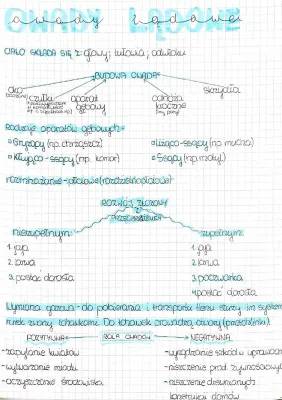 OWADY ŻĄDŁÓWE
CIAŁO SKŁADA SIĘ z: głowy, tułowia, odwłoku
BUDOWA OWADA
oko czułki aparat gębowy odnóża kroczne skrzydła
Rodzaje aparatów gębowych:
Gryzący (np. chrząszcz) Liżąco-ssący (np. mucha)
Kłująco-ssący (np. komar) Ssący (np. motyl)
rozmnażanie - płciowe (rozdzielnopłciowe)
ROZWÓJ ZŁOŻONY
Z PRZEOBRAŻENIEM
niezupełnym: zupełnym:
1. jaja 1. jaja
2. larwa 2. larwa
3. postać dorosła 3. poczwarka
4. postać dorosła
Wymiana gazowa - do pobierania i transportu tlenu służy im system
rurek zwany tchawkami. Do tchawek prowadzą otwory (przetchlinki).
POZYTYWNA ROLA OWADÓW NEGATYWNA
- zapylanie kwiatów - wyrządzanie szkód w uprawach
- wytwarzanie miodu - niszczenie prod. żywnościowych
- oczyszczanie środowiska - niszczenie drewnianych
konstrukcji domów